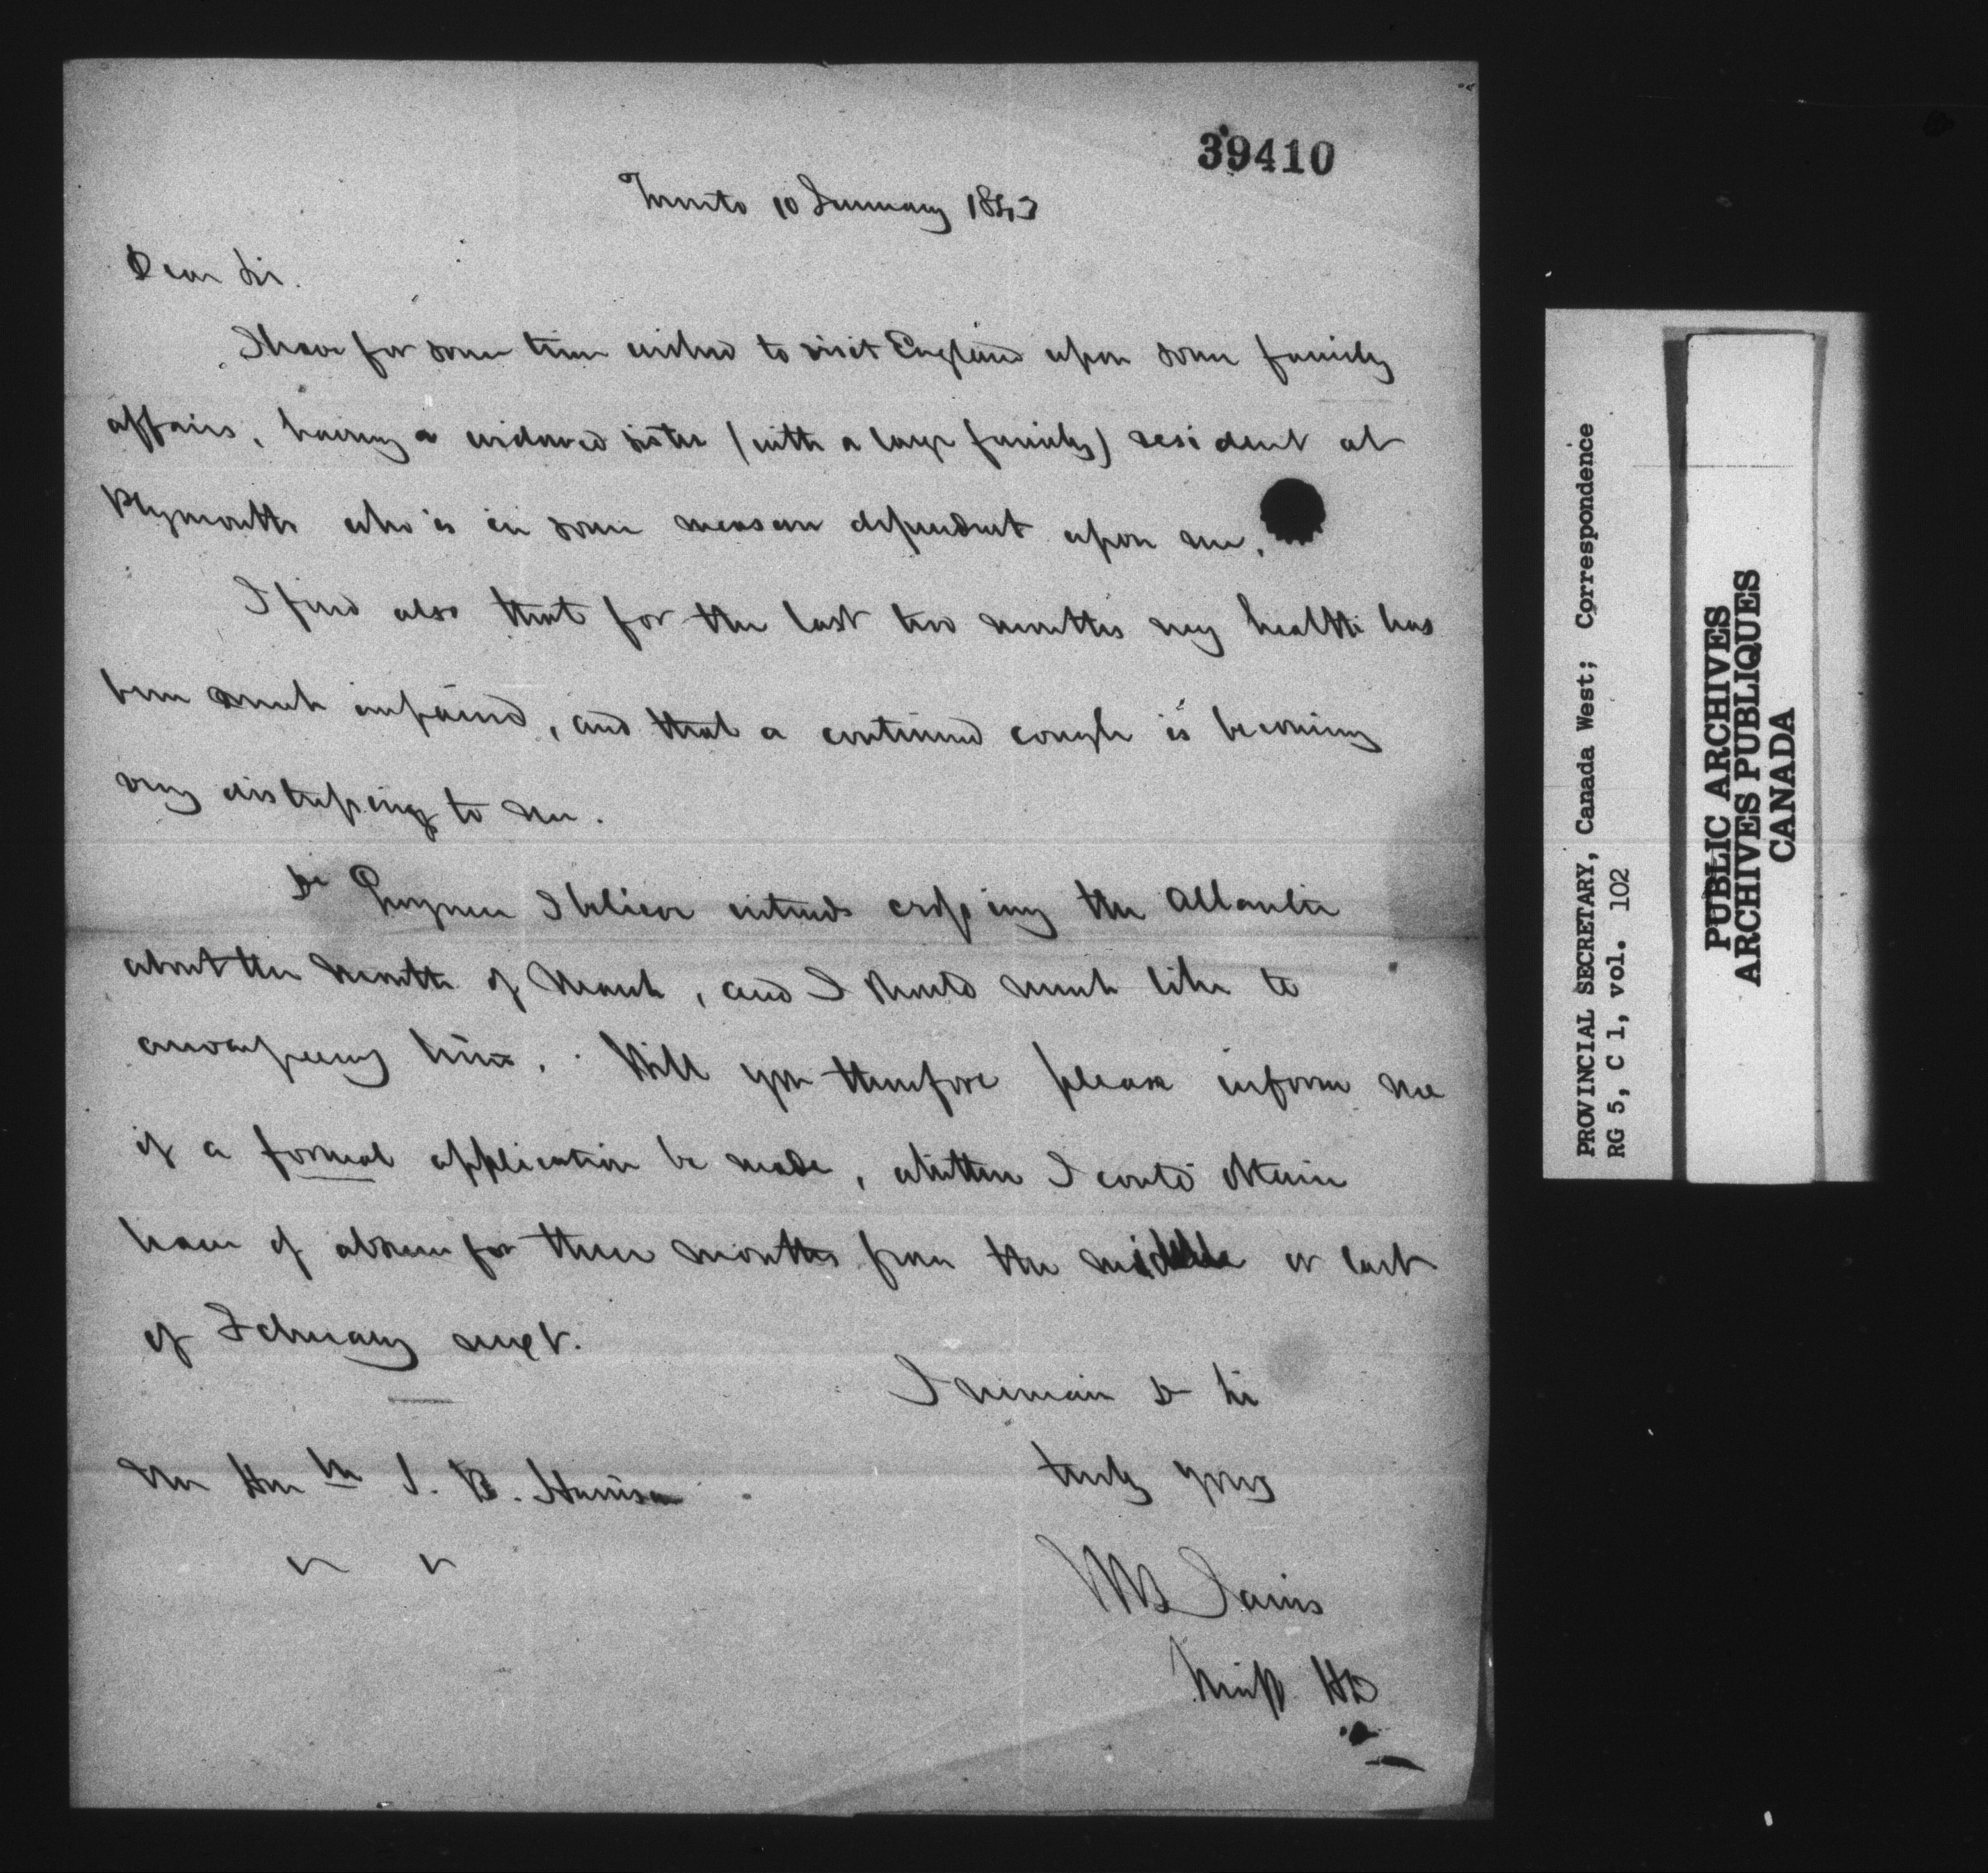 39410
Toronto 10 January 1843
Dear Sir.
I have for some time wished to visit England upon some family
affairs, having a widowed sister (with a large family) resident at
Plymouth who is in some measure dependent upon me.
I find also that for the last two months my health has
been much impaired, and that a continued cough is becoming
very distressing to me.
Dr I believe intends crossing the Atlantic
about the month of March, and I should much like to
accompany him. Will you therefore please inform me
if a formal application be made, whether I could obtain
leave of absence for three months from the middle or last
of February next.
I remain Dr Sir
truly yours
The Hon ble S. B. Harrison
WB Jarvis
Sheriff HD
PROVINCIAL SECRETARY, Canada West; Correspondence
RG 5, C 1, vol. 102
PUBLIC ARCHIVES
ARCHIVES PUBLIQUES
CANADA